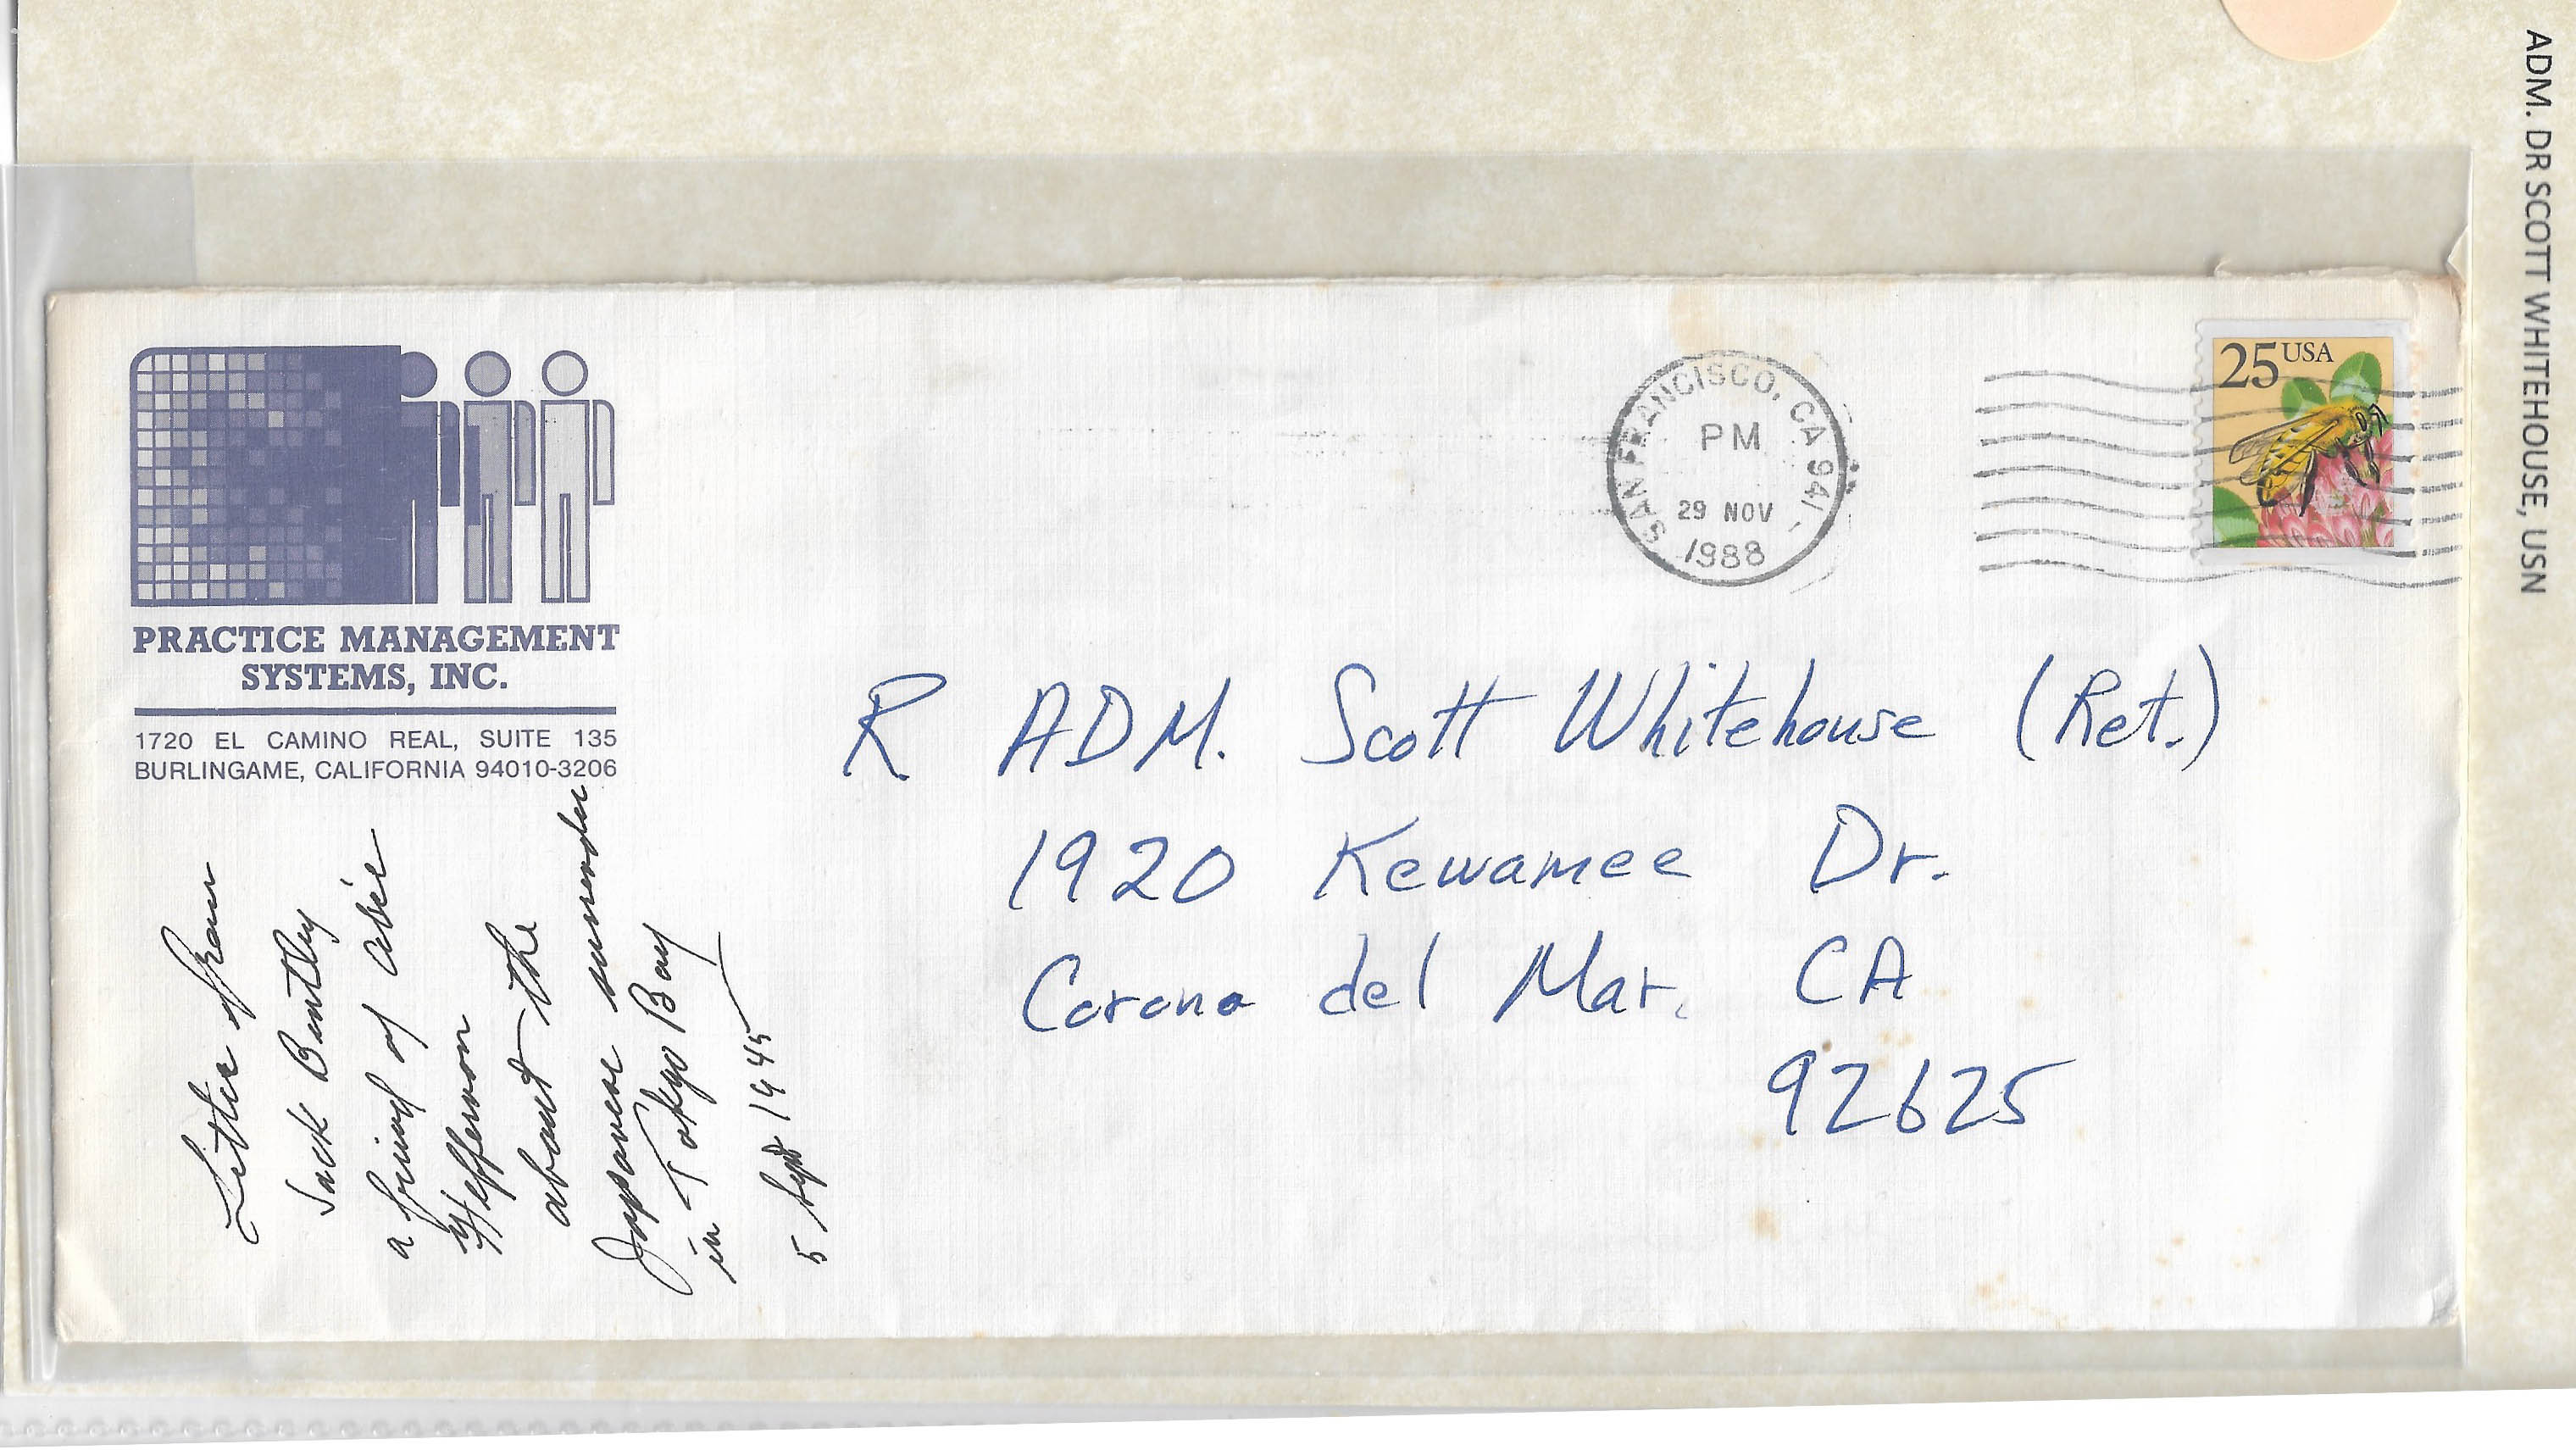 ADM. DR SCOTT WHITEHOUSE, USN
25 USA
SAN FRANCISCO, CA 941
PM
29 NOV
1988
PRACTICE MANAGEMENT
SYSTEMS, INC.
1720 EL CAMINO REAL, SUITE 135
BURLINGAME, CALIFORNIA 94010-3206
R ADM. Scott Whitehouse (Ret.)
1920 Kewamee Dr.
Corona del Mar, CA
92625
Letter from
Jack Bentley
a friend of Abie
Heffernon
about the
Japanese surrender
in Tokyo Bay
5 Sept 1945